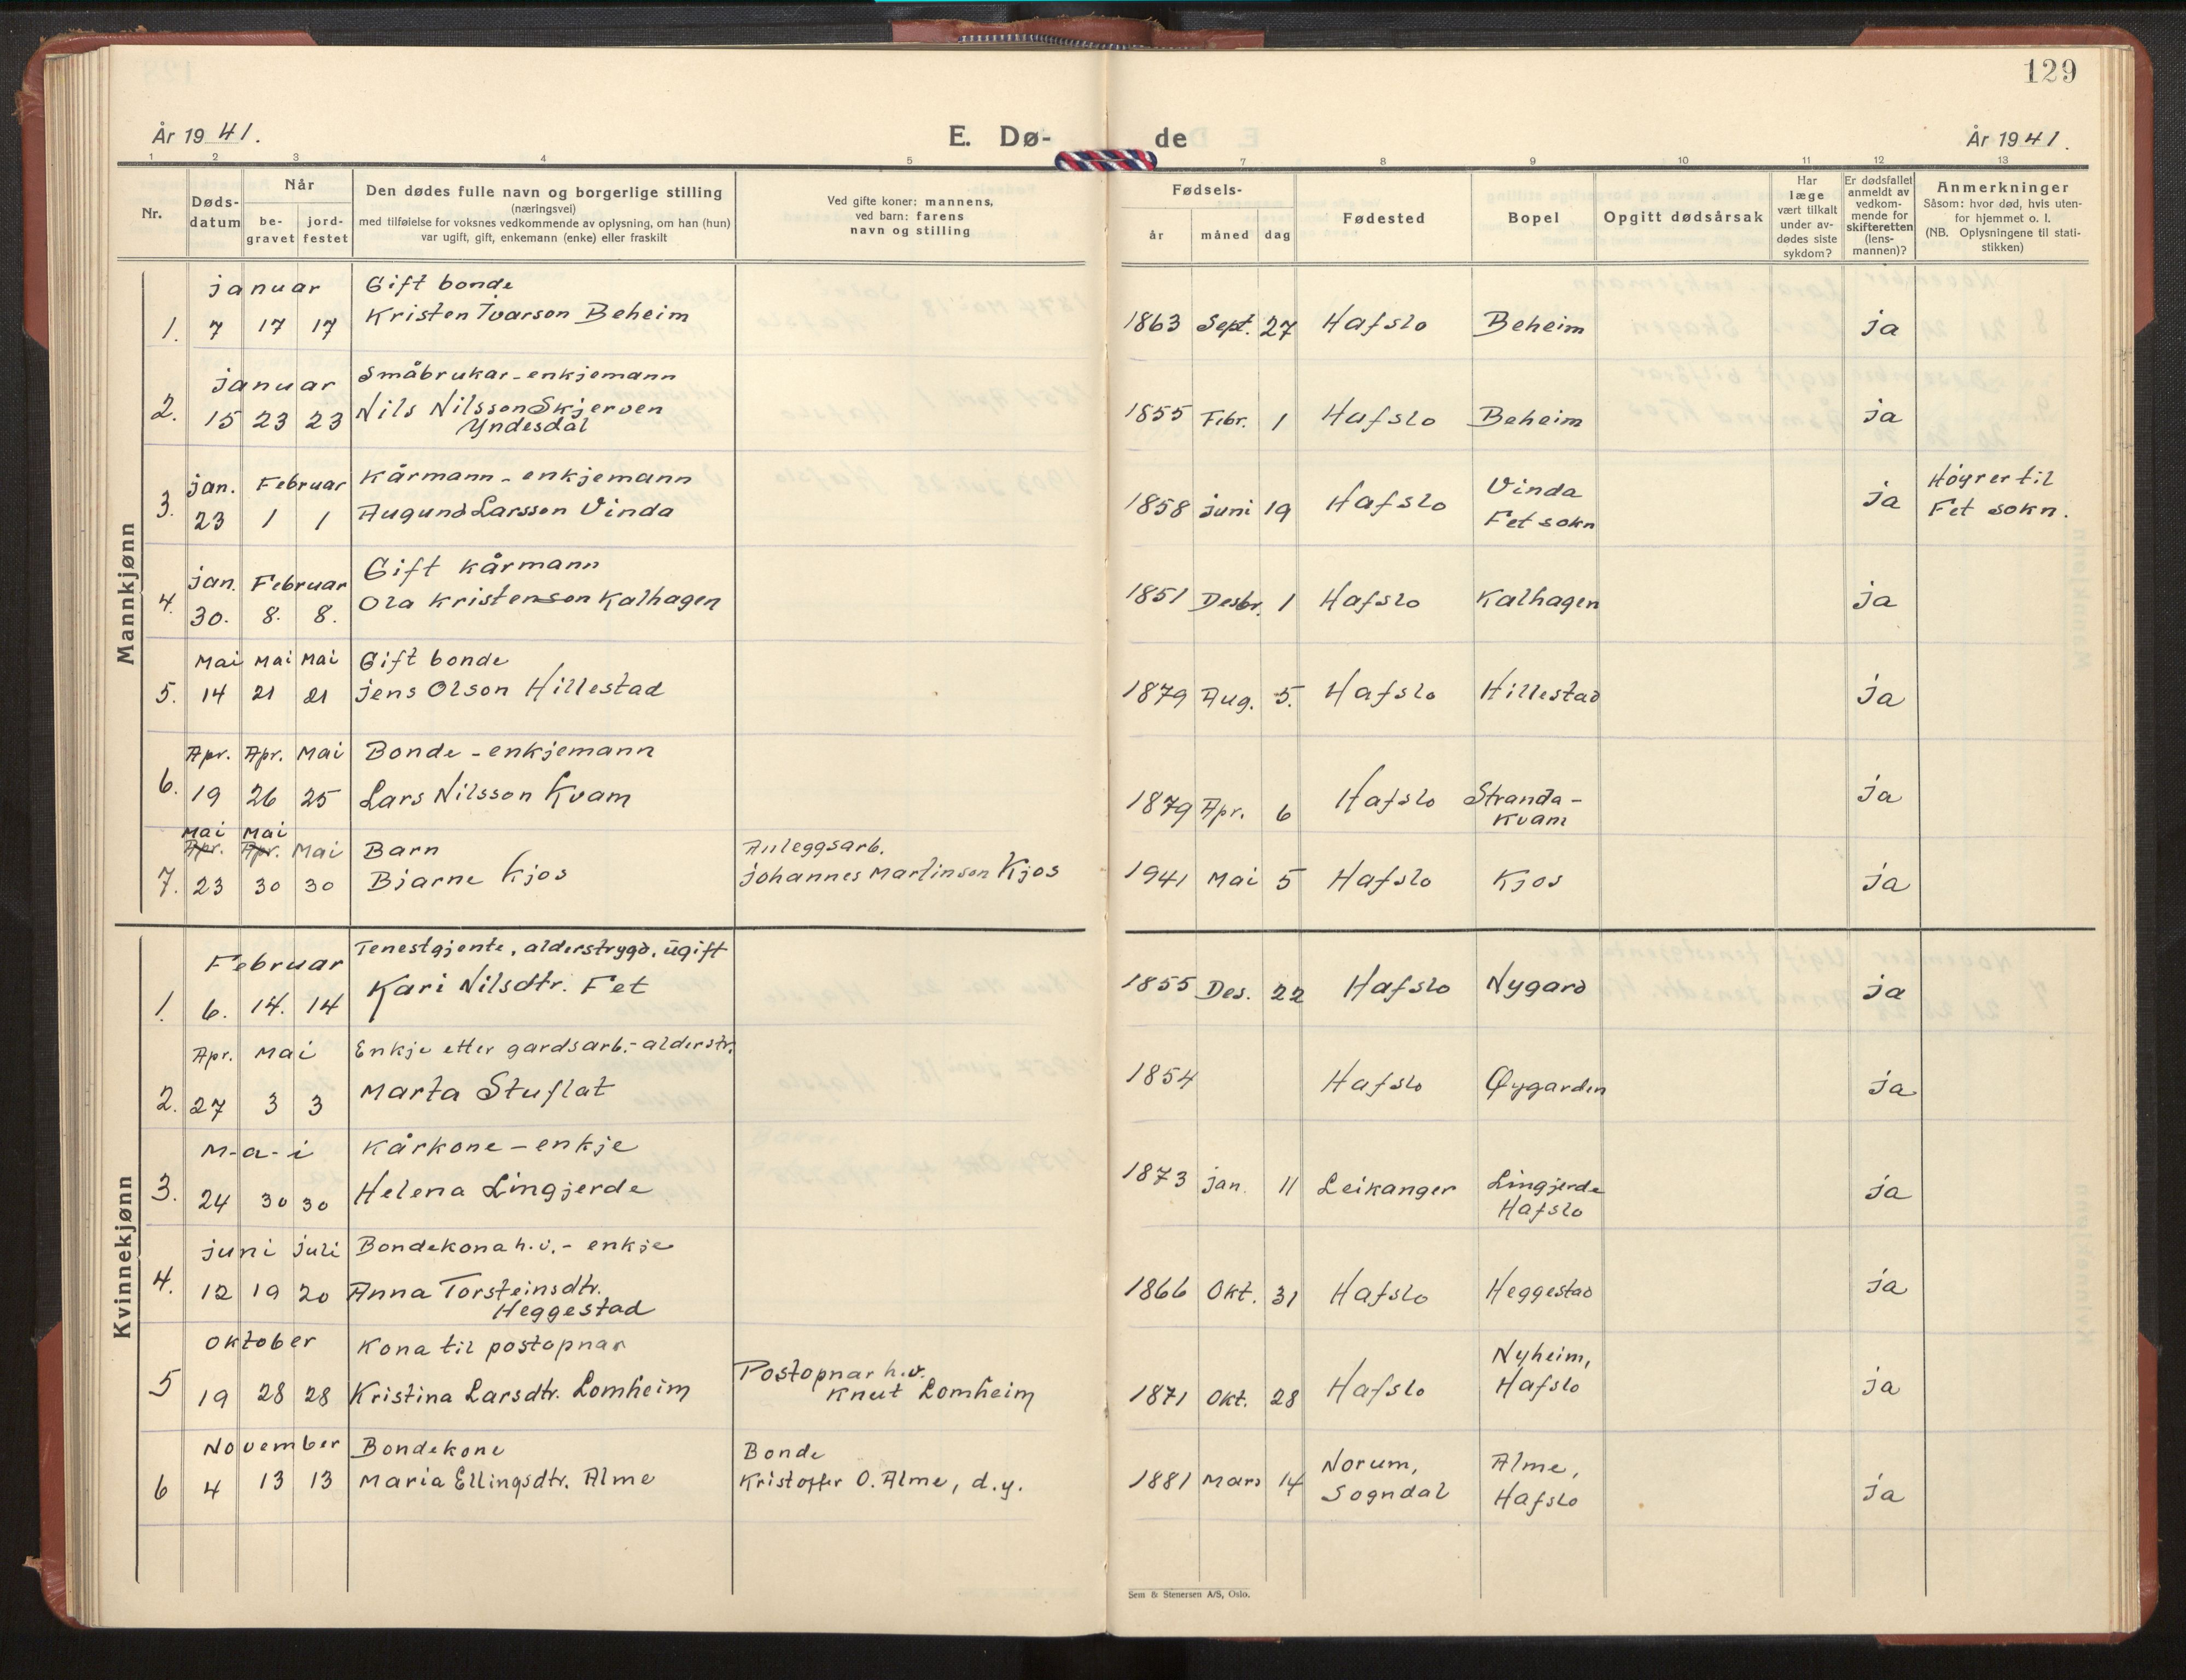 129
År 1941.
E. Dø-
de
År 1941.
1 2 3 4 5 7 8 9 10 11 12 13
Nr.
Døds-
datum
Når
be-
gravet
jord-
festet
Den dødes fulle navn og borgerlige stilling
(næringsvei)
med tilføielse for voksnes vedkommende av oplysning, om han (hun)
var ugift, gift, enkemann (enke) eller fraskilt
Ved gifte koner: mannens,
ved barn: farens
navn og stilling
Fødsels-
år måned dag
Fødested
Bopel
Opgitt dødsårsak
Har
læge
vært tilkalt
under av-
dødes siste
sykdom?
Er dødsfallet
anmeldt av
vedkom-
mende for
skifteretten
(lens-
mannen)?
Anmerkninger
Såsom: hvor død, hvis uten-
for hjemmet o. l.
(NB. Oplysningene til stati-
stikken)
Mannkjønn
januar Gift bonde
1. 7 17 17 Kristen Ivarson Beheim 1863 Sept. 27 Hafslo Beheim ja
januar Småbrukar - enkjemann
2. 15 23 23 Nils Nilsson Skjerven 1855 Febr. 1 Hafslo Beheim ja
Yndesdal
jan. Februar Kårmann - enkjemann Vinda Høyrer til
3. 23 1 1 Augund Larsson Vinda 1858 juni 19 Hafslo Fet sokn ja Fet sokn.
jan. Februar Gift kårmann
4. 30. 8. 8. Ola Kristenson Kalhagen 1851 Desbr. 1 Hafslo Kalhagen ja
Mai Mai Mai Gift bonde
5. 14 21 21 Jens Olson Hillestad 1879 Aug. 5. Hafslo Hillestad ja
Apr. Apr. Mai Bonde - enkjemann
6. 19 26 25 Lars Nilsson Kvam 1879 Apr. 6 Hafslo Stranda - ja
Kvam
Mai Mai
Apr. Apr. Mai Barn Anleggsarb.
7. 23 30 30 Bjarne Kjos Johannes Martinson Kjos 1941 Mai 5 Hafslo Kjos ja
Kvinnekjønn
Februar Tenestgjente, alderstrygd, ugift
1. 6. 14. 14 Kari Nilsdtr. Fet 1855 Des. 22 Hafslo Nygard ja
Apr. Mai Enkje etter gardsarb.- alderstr.
2. 27 3 3 Marta Stuflat 1854 Hafslo Øygarden ja
M-a-i Kårkone - enkje
3. 24 30 30 Helena Lingjerde 1873 jan. 11 Leikanger Lingjerde ja
Hafslo
juni juli Bondekona h.v. - enkje
4. 12 19 20 Anna Torsteinsdtr. 1866 Okt. 31 Hafslo Heggestad ja
Heggestad
Oktober Kona til postopnar Postopnar h.v. Nyheim,
5 19 28 28 Kristina Larsdtr. Lomheim Knut Lomheim 1871 Okt. 28 Hafslo Hafslo ja
November Bondekone Bonde Norum, Alme,
6 4 13 13 Maria Ellingsdtr. Alme Kristoffer O. Alme, d.y. 1881 Mars 14 Sogndal Hafslo ja
Sem & Stenersen A/S, Oslo.